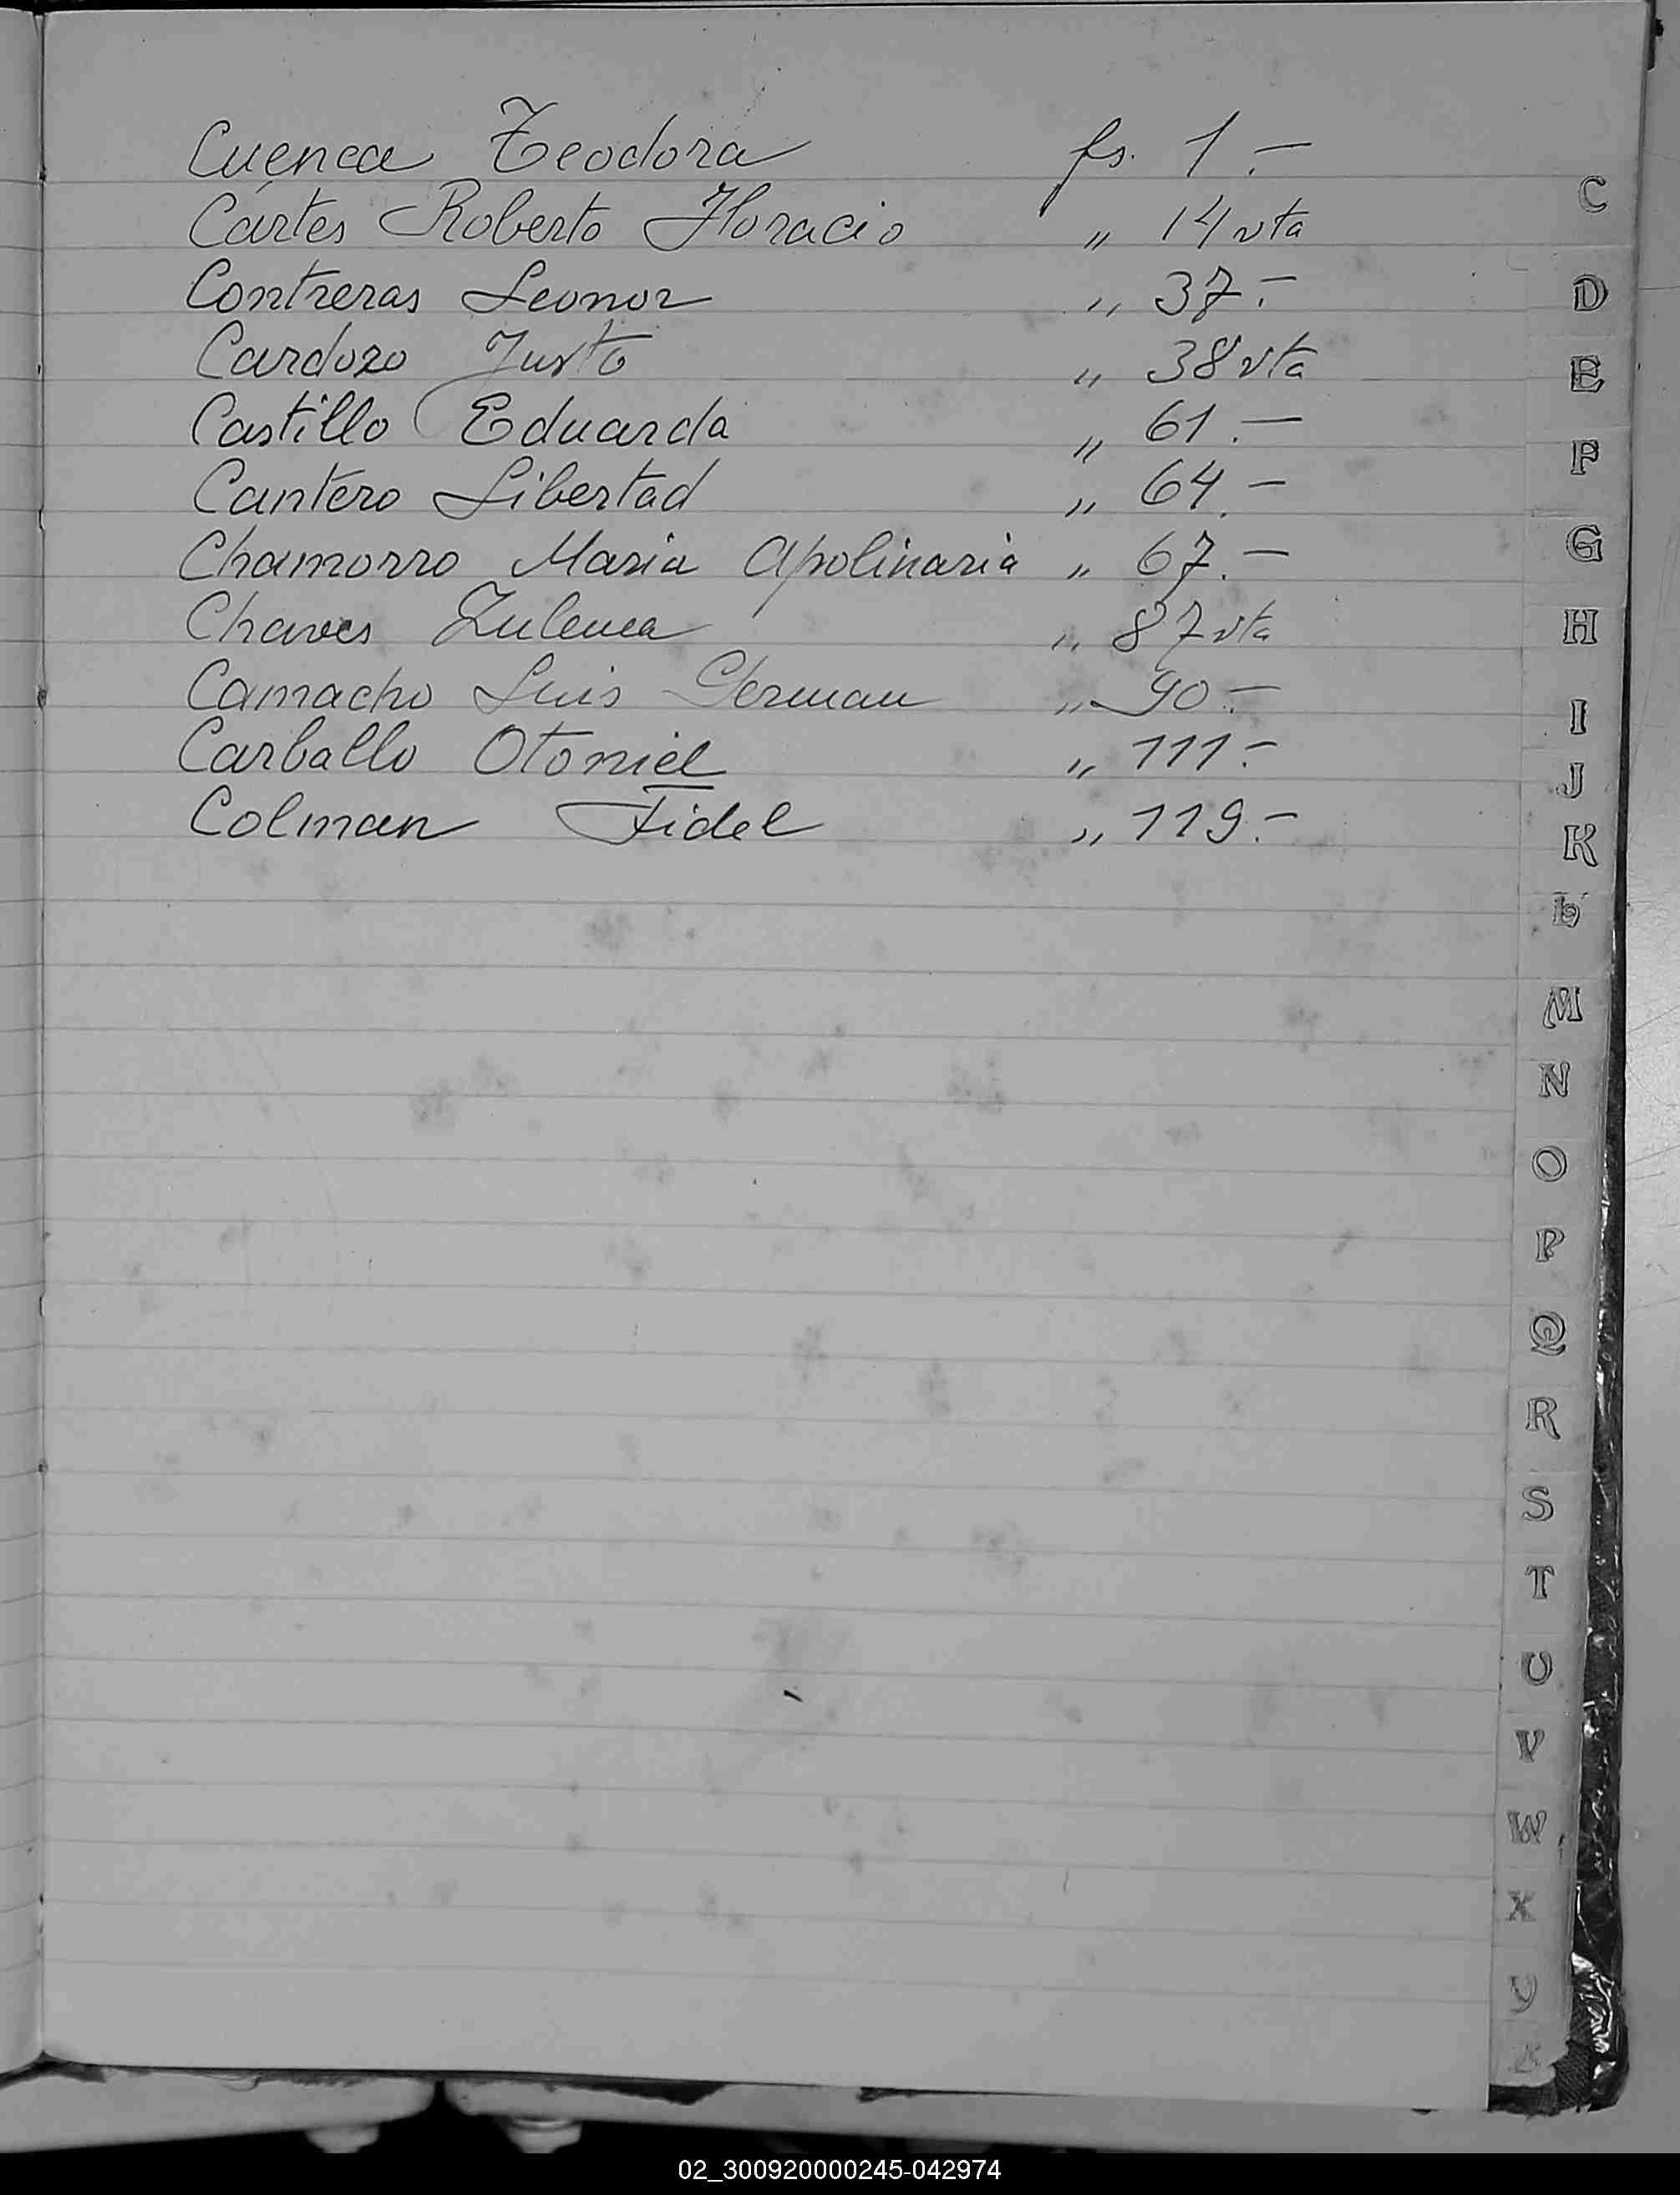 Cuenca Teodora fs. 1.-
Cartes Roberto Horacio " 14 vta
Contreras Leonor " 37.-
Cardozo Justo " 38 vta
Castillo Eduarda " 61.-
Cantero Libertad " 64.-
Chamorro Maria Apolinaria " 67.-
Chaves Zulema " 87 vta
Camacho Luis German " 90.-
Carballo Otoniel " 111.-
Colman Fidel " 119.-
C
D
E
F
G
H
I
J
K
L
M
N
O
P
Q
R
S
T
U
V
W
X
Y
Z
02_300920000245-042974